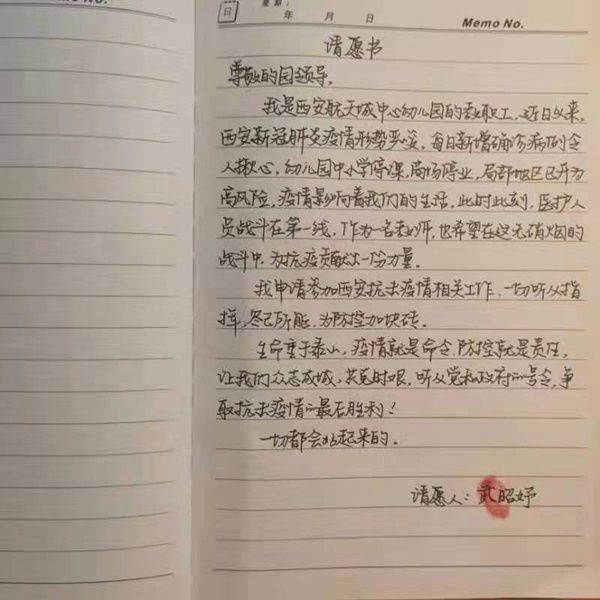 日
星期:
年 月 日
Memo No.
No.
请愿书
尊敬的园领导,
我是西安航天城中心幼儿园的教职工,近日以来,
西安新冠肺炎疫情形势严峻,每日新增确诊病例令
人揪心,幼儿园中小学停课,商场停业,局部地区已升为
高风险,疫情影响着我们的生活,此时此刻,医护人
员战斗在第一线,作为一名老师,也希望在这无硝烟的
战斗中,为抗疫贡献出一份力量。
我申请参加西安抗击疫情相关工作,一切听从指
挥,尽己所能,为防控加块砖。
生命重于泰山,疫情就是命令,防控就是责任,
让我们众志成城,共克时艰,听从党和政府的号令,争
取抗击疫情的最后胜利!
一切都会好起来的。
请愿人:武昭妤